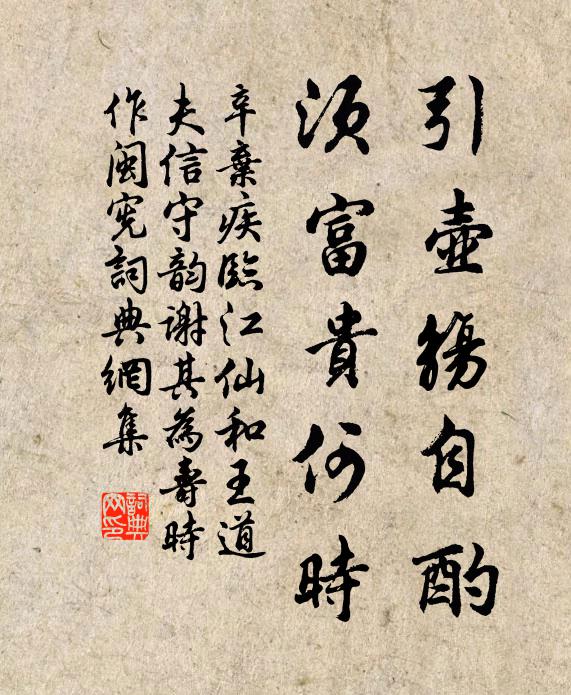 引壺觴自酌
須富貴何時
辛棄疾臨江仙和王道
夫信守韵謝其為壽時
作閩憲詞典網集
詞典網印